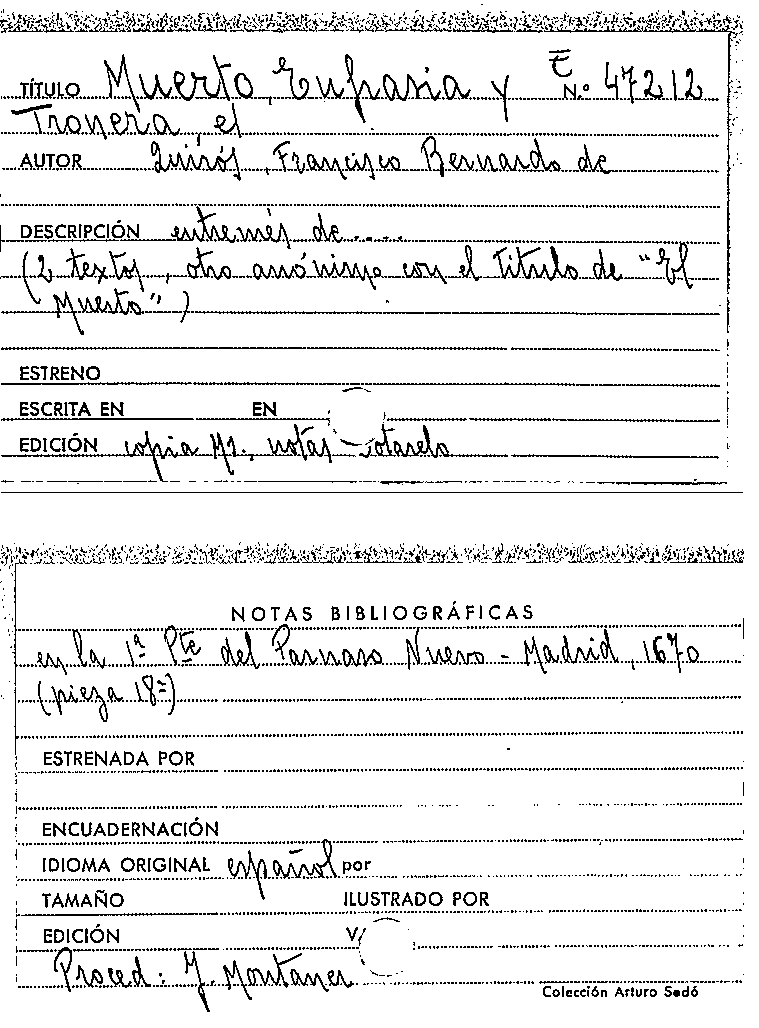 TÍTULO Muerto, Eufrasia y E N.º 47212
Tronera, el
AUTOR Quirós, Francisco Bernardo de
DESCRIPCIÓN entremés de.....
(2 textos, otro anónimo con el título de "El
Muerto")
ESTRENO
ESCRITA EN EN
EDICIÓN copia Ms., notas Cotarelo
NOTAS BIBLIOGRÁFICAS
en la 1ª Pte del Parnaso Nuevo - Madrid, 1670
(pieza 18ª)
ESTRENADA POR
ENCUADERNACIÓN
IDIOMA ORIGINAL español por
TAMAÑO ILUSTRADO POR
EDICIÓN V/
Proced: J. Montaner
Colección Arturo Sedó